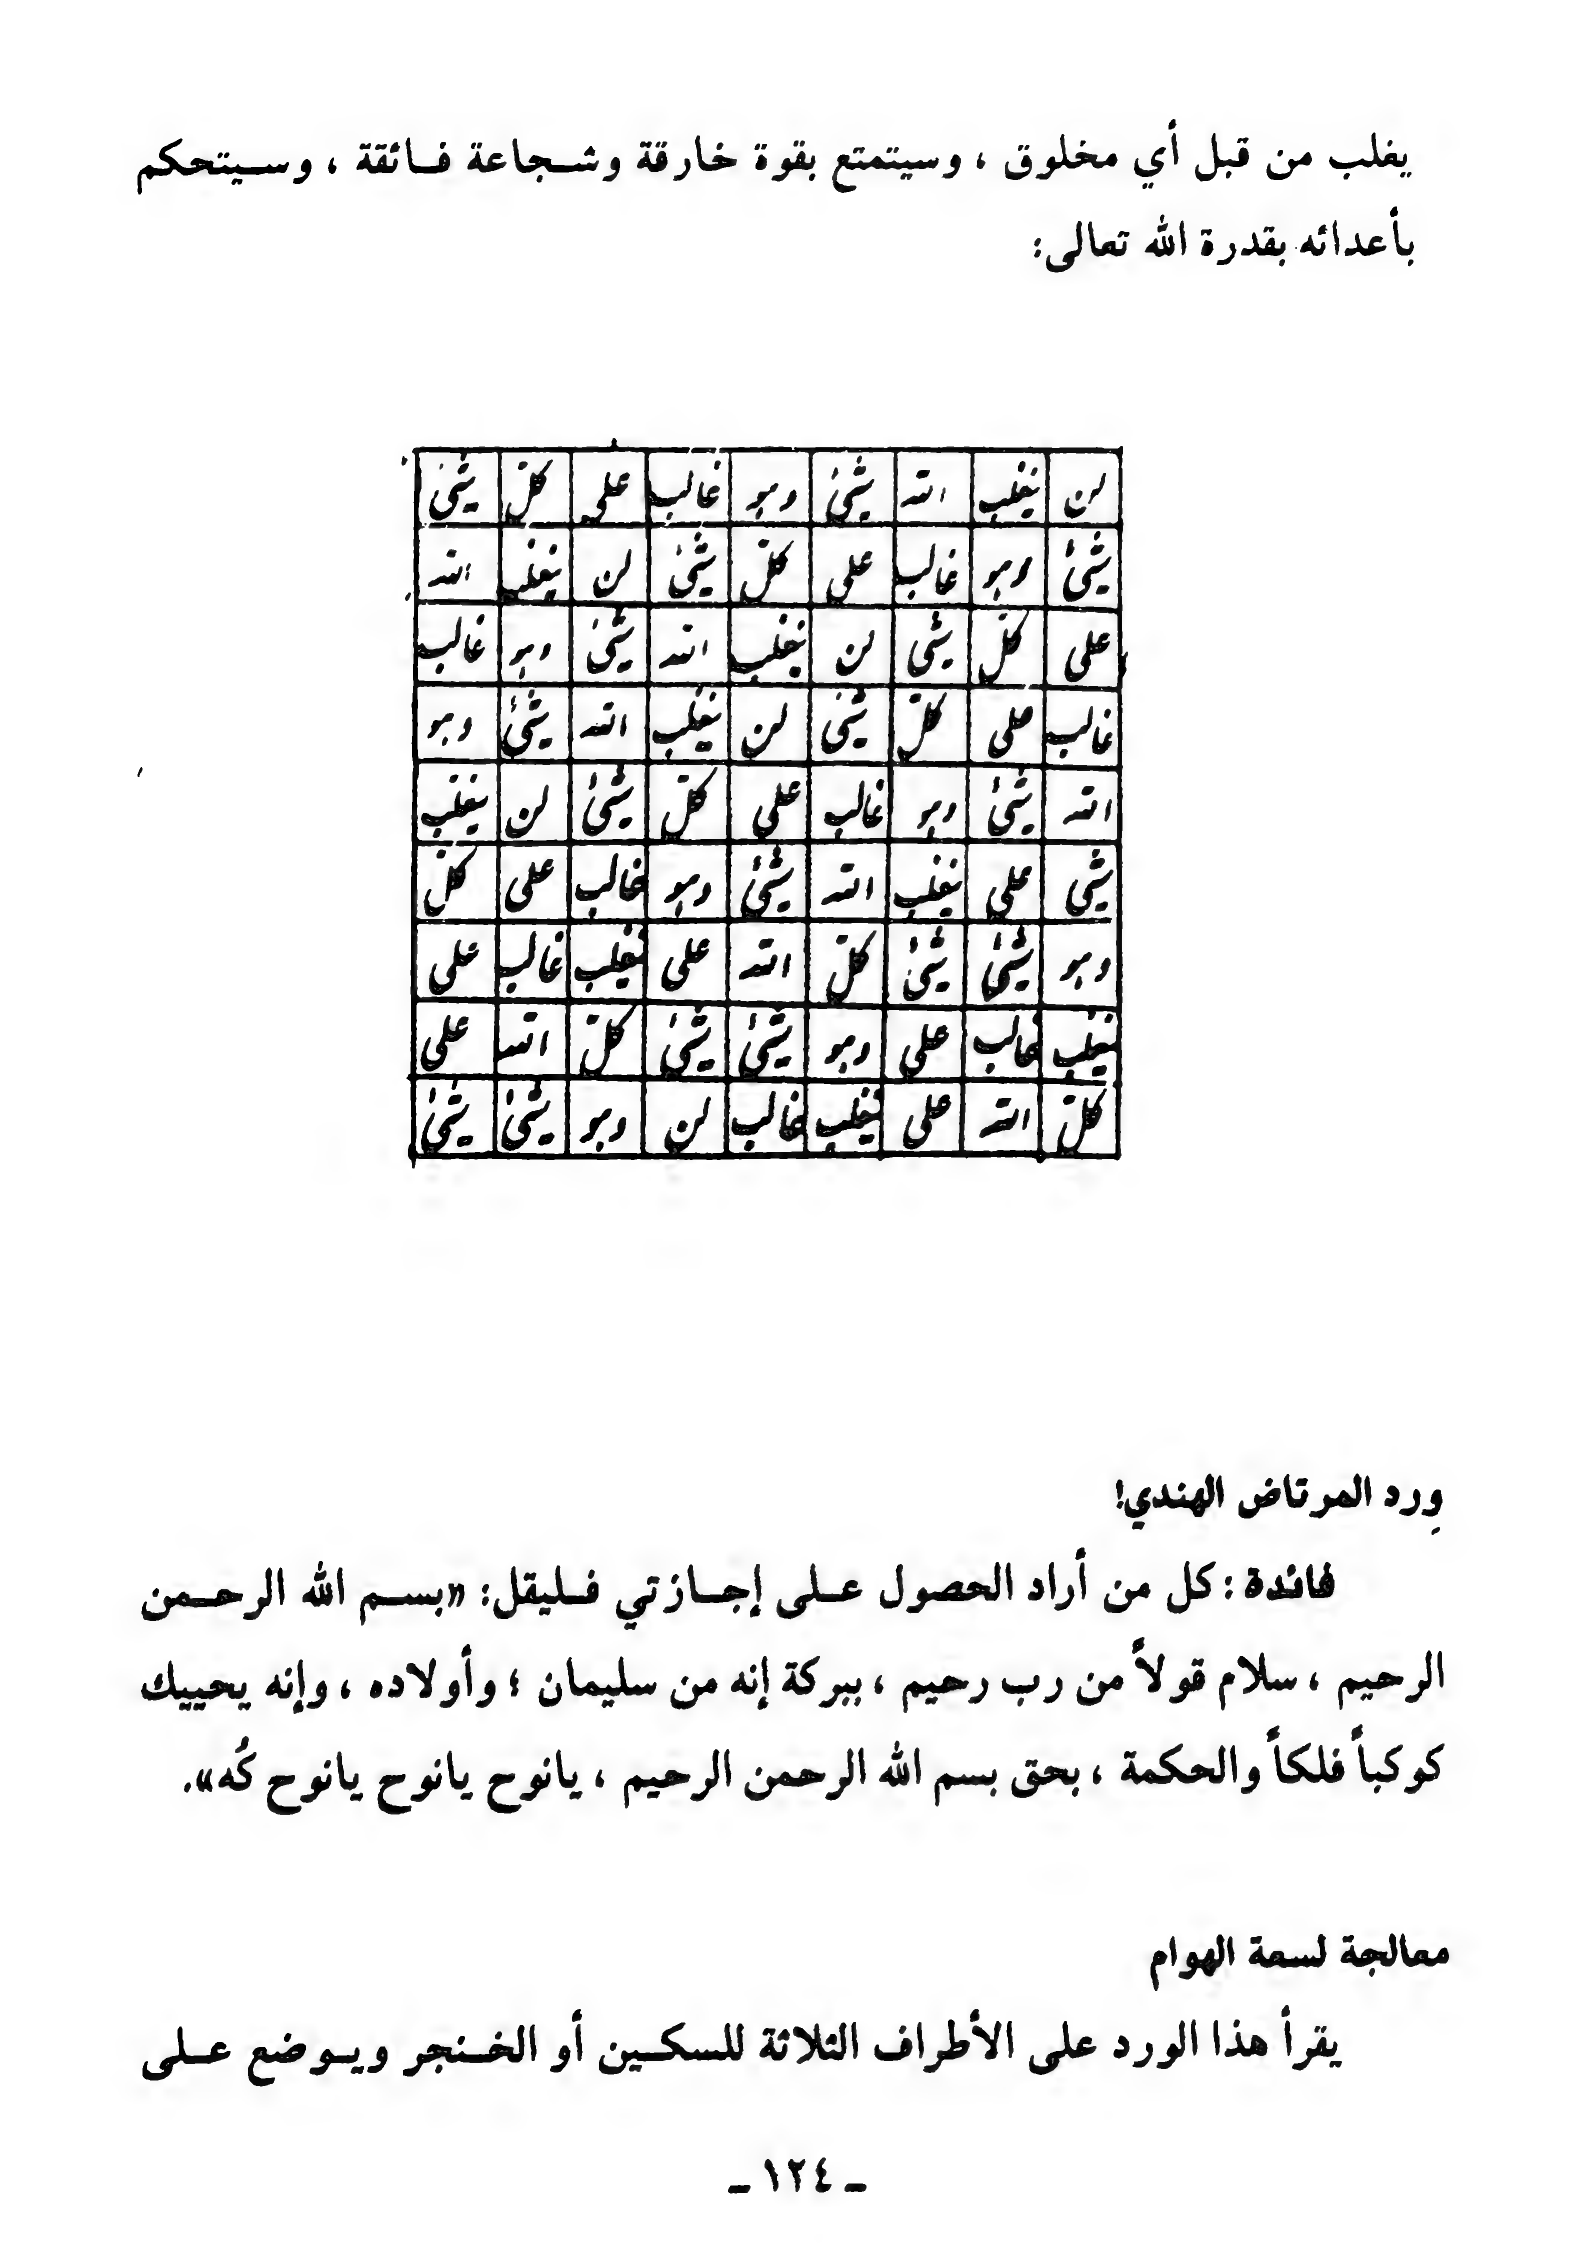 يغلب من قبل أي مخلوق ، وسيتمتع بقوة خارقة وشجاعة فائقة ، وسيتحكم
بأعدائه بقدرة الله تعالى:
لن يغلب الله شئ وهو غالب على كل شئ
شئ وهو غالب على كل شئ لن يغلب الله
على كل شئ لن يغلب الله شئ وهو غالب
غالب على كل شئ لن يغلب الله شئ وهو
الله شئ وهو غالب على كل شئ لن يغلب
شئ على يغلب الله شئ وهو غالب على كل
وهو شئ شئ كل الله على يغلب غالب على
يغلب غالب على وهو شئ شئ كل الله على
كل الله على يغلب غالب لن وهو شئ شئ
وِرد المرتاض الهندي!
فائدة : كل من أراد الحصول على إجازتي فليقل: «بسم الله الرحمن
الرحيم ، سلام قولاً من رب رحيم ، ببركة إنه من سليمان ؛ وأولاده ، وإنه يحييك
كوكباً فلكاً والحكمة ، بحق بسم الله الرحمن الرحيم ، يانوح يانوح يانوح كُه».
معالجة لسعة الهوام
يقرأ هذا الورد على الأطراف الثلاثة للسكين أو الخنجر ويوضع على
ـ ١٢٤ ـ